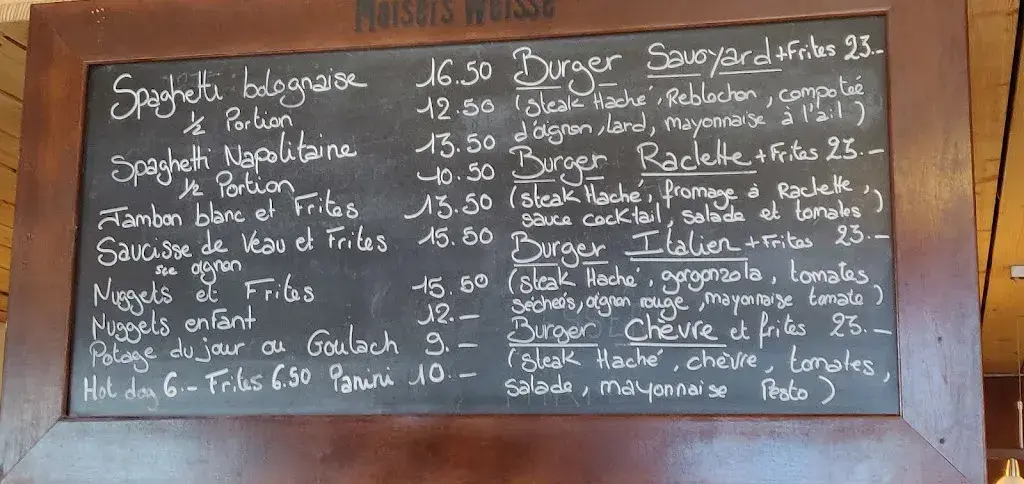 Maisers Weisse
Spaghetti bolognaise 16.50
1/2 Portion 12.50
Spaghetti Napolitaine 13.50
1/2 Portion 10.50
Jambon blanc et Frites 13.50
Saucisse de Veau et Frites 15.50
sce oignon
Nuggets et Frites 15.50
Nuggets enfant 12.-
Potage du jour ou Goulach 9.-
Hot dog 6.- Frites 6.50 Panini 10.-
Burger Savoyard + Frites 23.-
(steak Haché, Reblochon, compotée
d'oignon, lard, mayonnaise à l'ail)
Burger Raclette + Frites 23.-
(steak Haché, fromage à Raclette,
sauce cocktail, salade et tomates)
Burger Italien + Frites 23.-
(steak Haché, gorgonzola, tomates
sechés, oignon rouge, mayonnaise tomate)
Burger Chèvre et frites 23.-
(steak Haché, chèvre, tomates,
salade, mayonnaise Pesto)